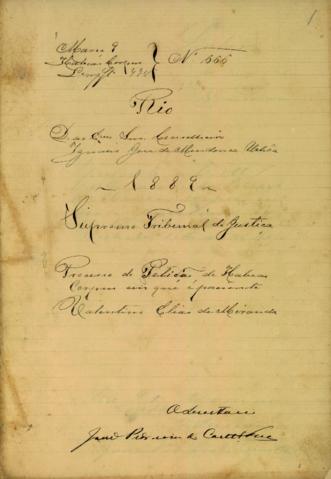 1
Março 9
Habeas Corpus
Nº 666
Rio
Do Exm Snr Conselheiro
Ignacio José de Mendonça Uchôa
1889
Supremo Tribunal de Justiça
Processo de Petição de Habeas
Corpus em que é paciente
Valentim Elias de Miranda
O Secretario
João Pedreira do Couto Ferraz